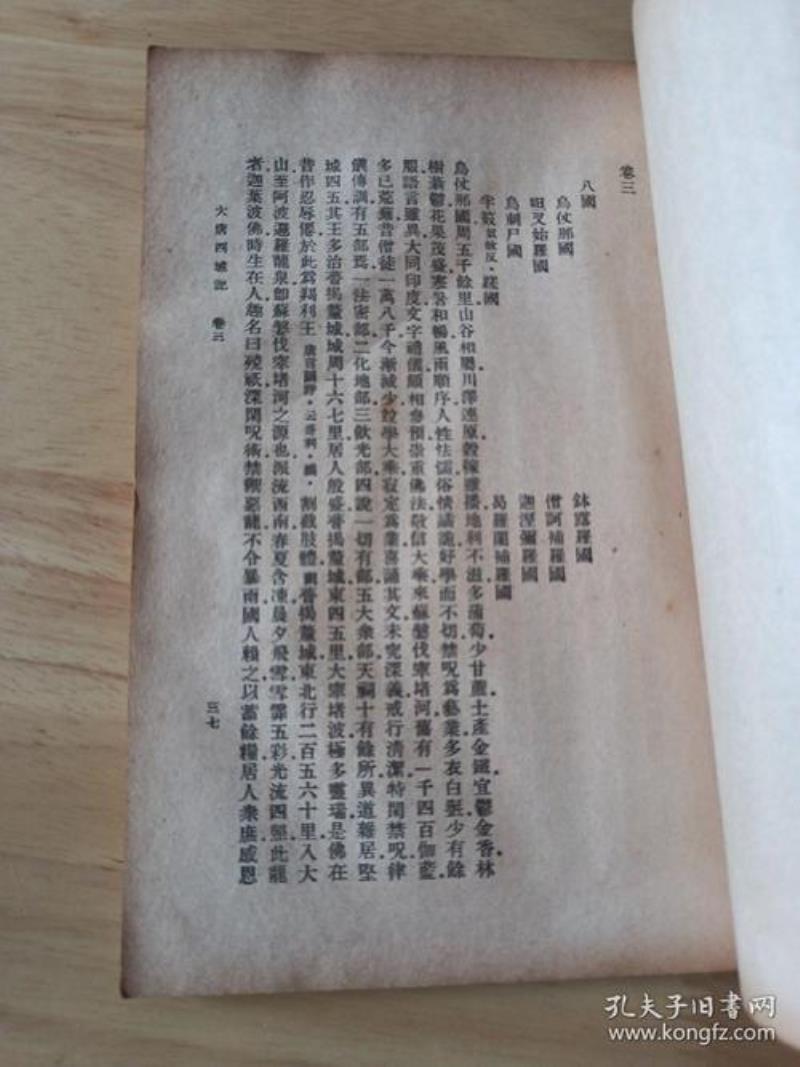 卷三
八國
烏仗那國
鉢露羅國
呾叉始羅國
僧訶補羅國
烏剌尸國
迦溼彌羅國
半笯奴故反蹉國
曷羅闍補羅國
烏仗那國周五千餘里山谷相屬川澤連原穀稼雖播地利不滋多蒲萄少甘蔗土產金鐵宜鬱金香林
樹蓊鬱花果茂盛寒暑和暢風雨順序人性怯懦俗情譎詭好學而不切禁呪爲藝業多衣白㲲少有餘
服語言雖異大同印度文字禮儀頗相參預崇重佛法敬信大乘夾蘇婆伐窣堵河舊有一千四百伽藍
多已荒蕪昔僧徒一萬八千今漸減少竝學大乘寂定爲業喜誦其文未究深義戒行清潔特閑禁呪律
儀傳訓有五部焉一法密部二化地部三飲光部四說一切有部五大衆部天祠十有餘所異道雜居堅
城四五其王多治瞢揭釐城城周十六七里居人殷盛瞢揭釐城東四五里大窣堵波極多靈瑞是佛在
昔作忍辱僊於此爲羯利王割截肢體瞢揭釐城東北行二百五六十里入大
山至阿波邏羅龍泉卽蘇婆伐窣堵河之源也派流西南春夏含凍晨夕飛雪雪霏五彩光流四照此龍
者迦葉波佛時生在人趣名曰殑祇深閑呪術禁禦惡龍不令暴雨國人賴之以蓄餘糧居人衆庶感恩
大唐西域記 卷三
三七
孔夫子旧书网
www.kongfz.com